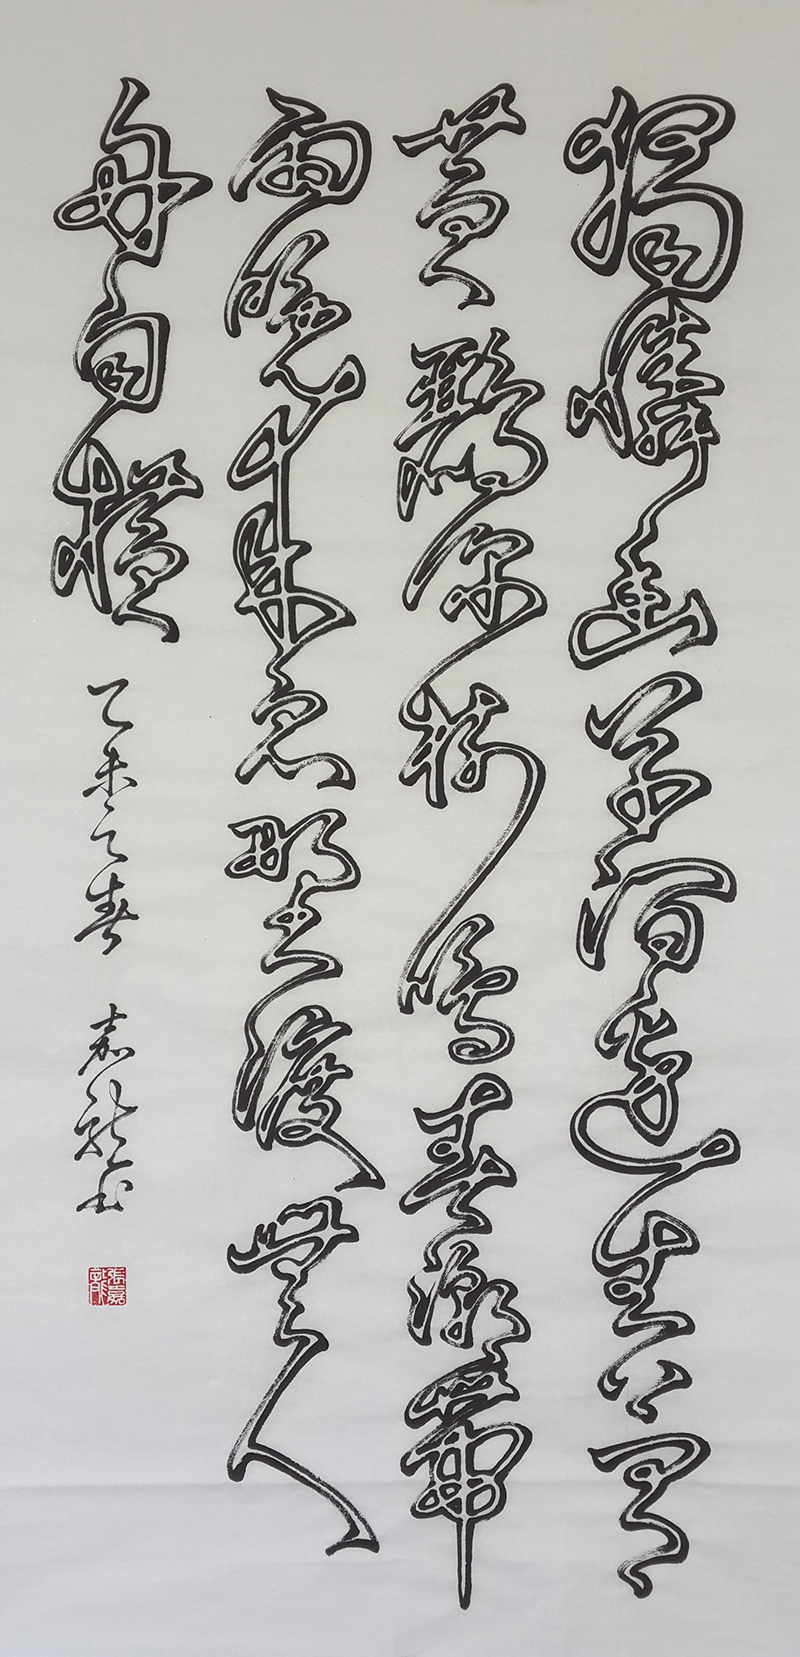 獨憐幽草澗邊生上有
黃鸝深樹鳴春潮帶
雨晚來急野渡無人
舟自橫
乙未之春 嘉龍书
張嘉龍